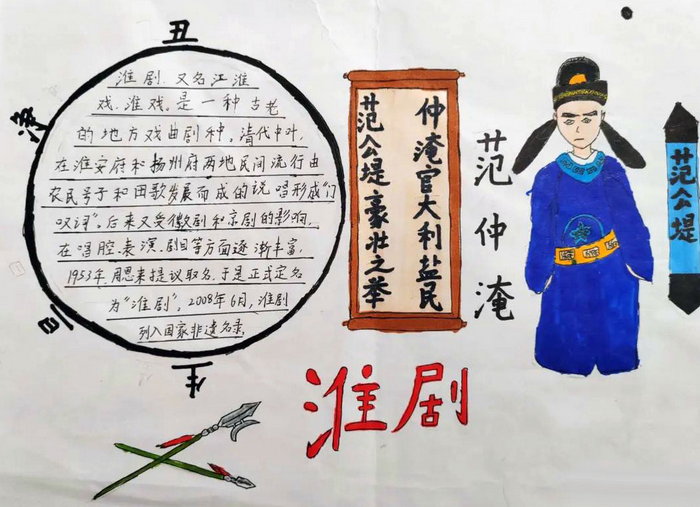 丑
净
旦
生
淮剧，又名江淮
戏、淮戏，是一种古老
的地方戏曲剧种，清代中叶，
在淮安府和扬州府两地民间流行由
农民号子和田歌发展而成的说唱形成"门
叹词"。后来又受徽剧和京剧的影响，
在唱腔、表演、剧目等方面逐渐丰富，
1953年，周恩来提议取名，于是正式定名
为"淮剧"，2008年6月，淮剧
列入国家非遗名录。
仲淹官大利盐民
范公堤豪壮之举
范仲淹
范公堤
淮剧